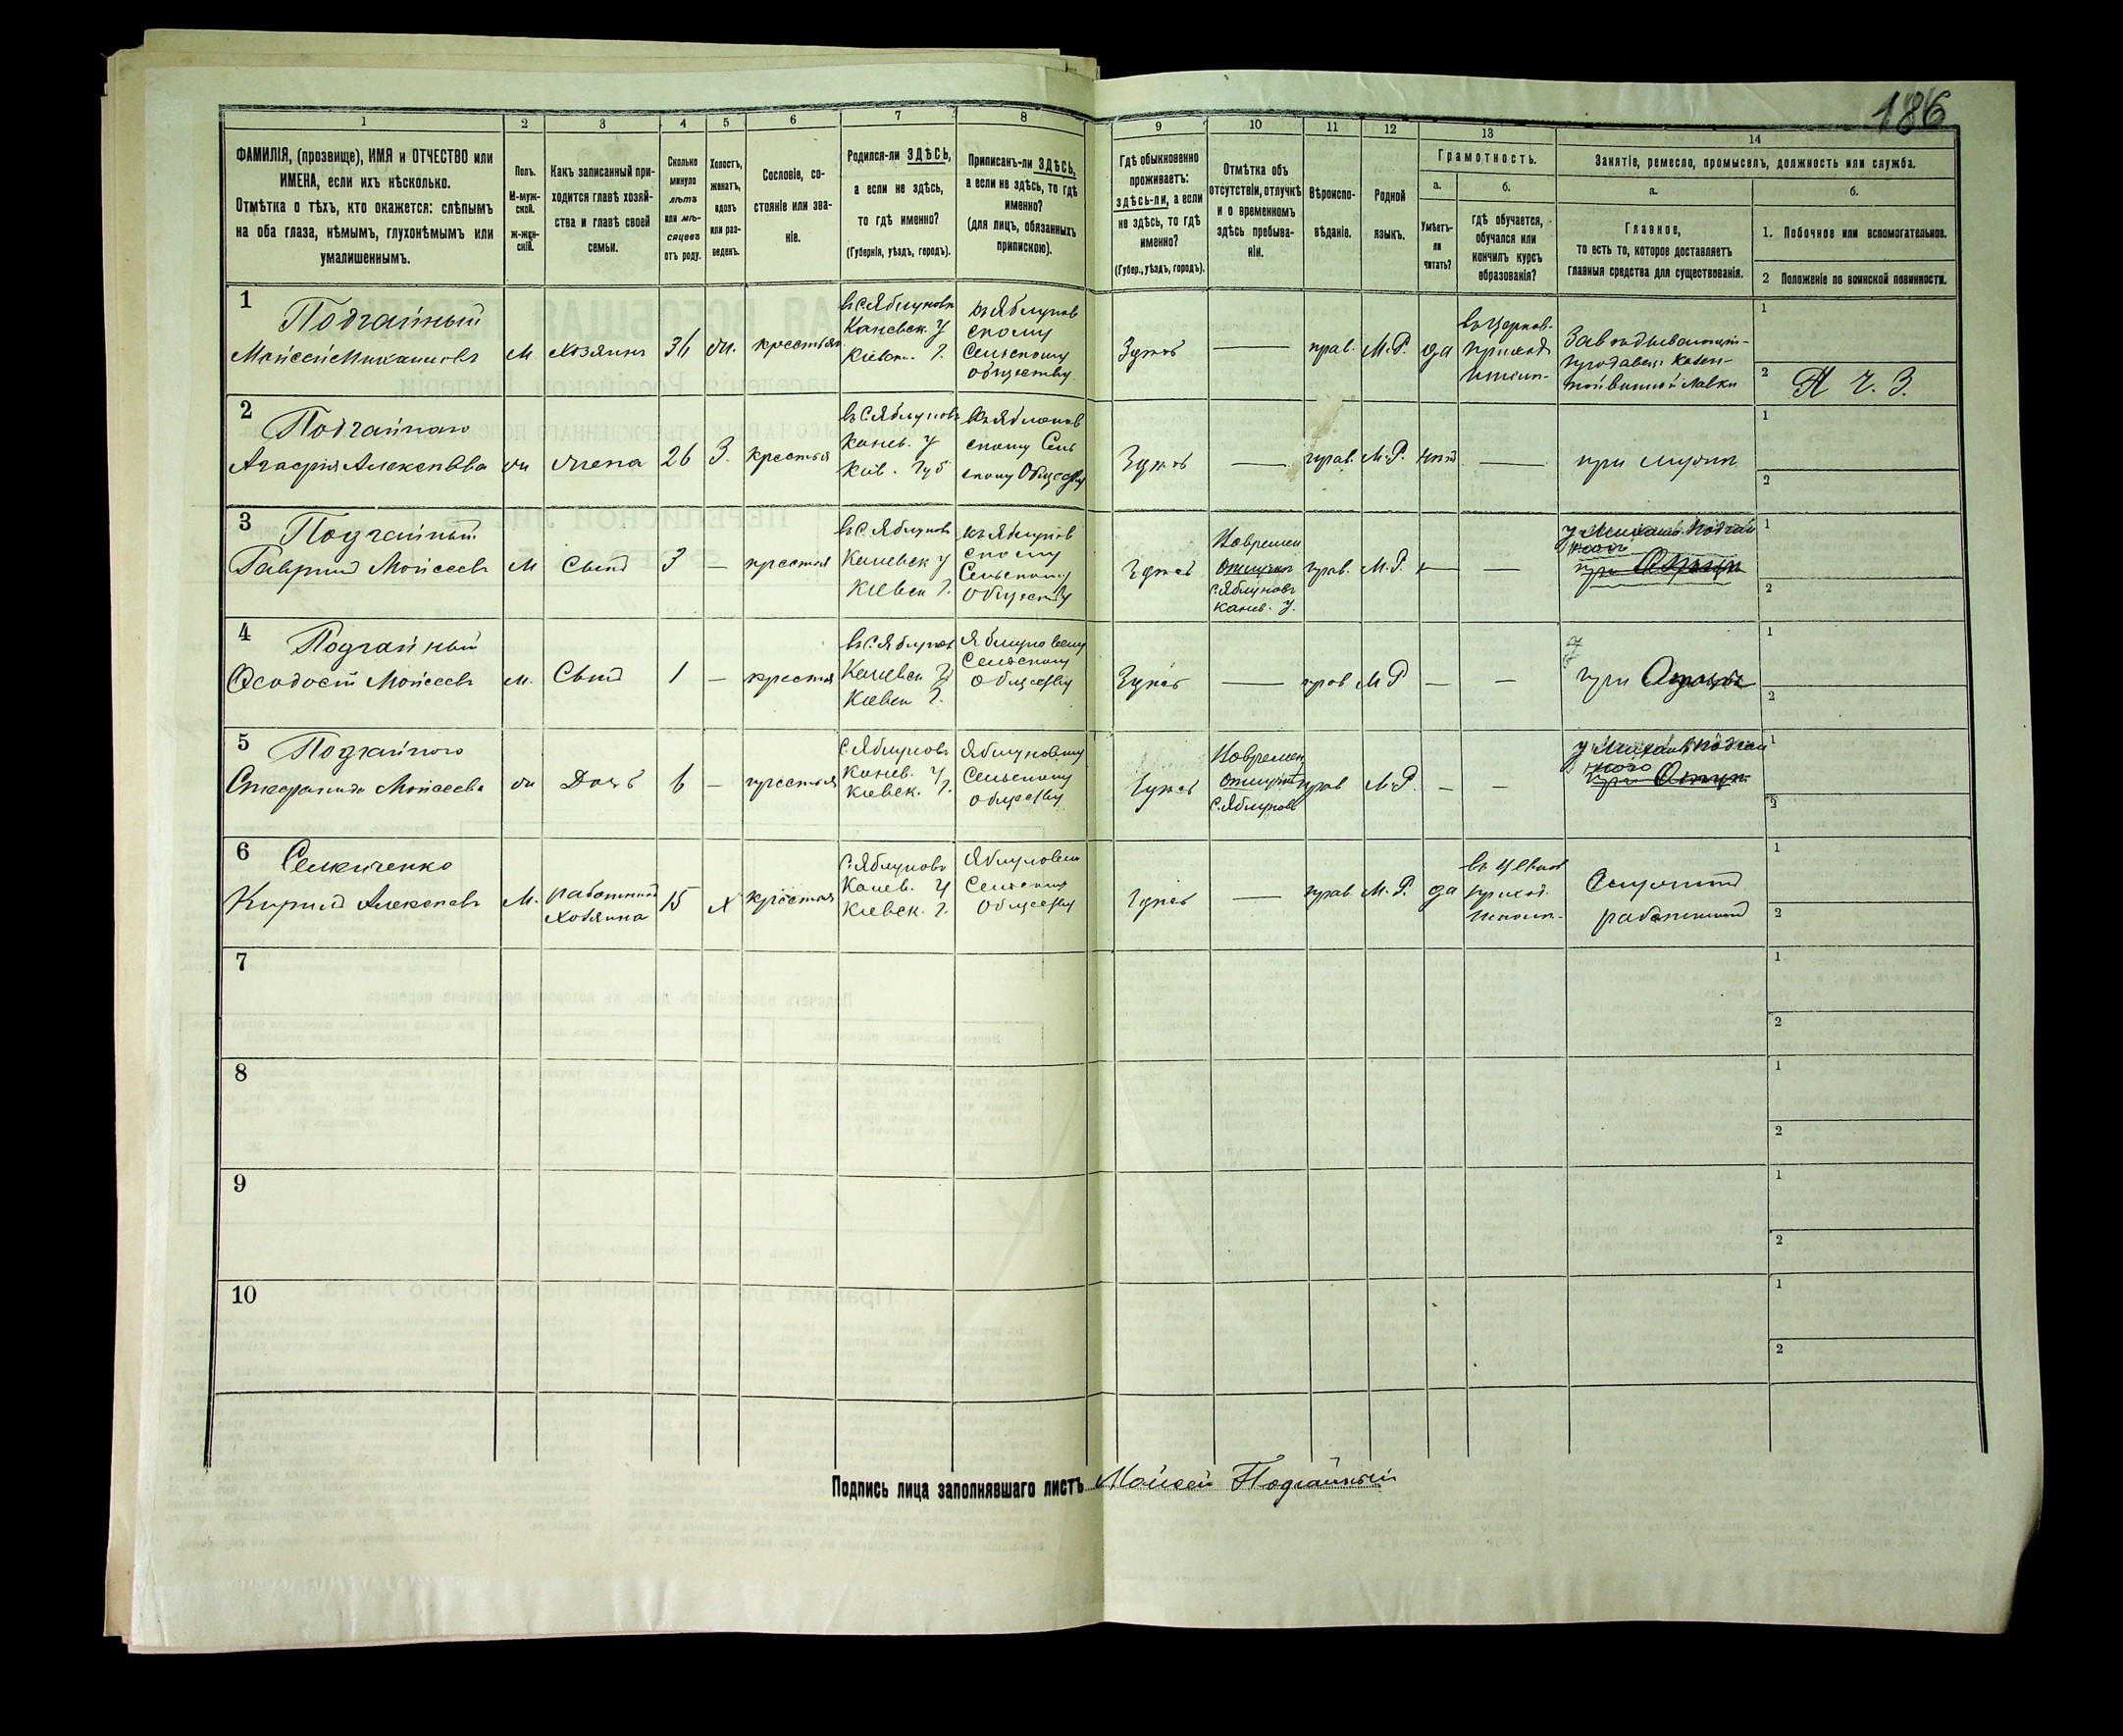 186
1 2 3 4 5 6 7 8 9 10 11 12 13 14
ФАМИЛІЯ, (прозвище), ИМЯ и ОТЧЕСТВО или
ИМЕНА, если ихъ нѣсколько.
Отмѣтка о тѣхъ, кто окажется: слѣпымъ
на оба глаза, нѣмымъ, глухонѣмымъ или
умалишеннымъ.
Полъ.
М-муж-
ской.
ж-жен-
скій.
Какъ записанный при-
ходится главѣ хозяй-
ства и главѣ своей
семьи.
Сколько
минуло
лѣтъ
или мѣ-
сяцевъ
отъ роду.
Холостъ,
женатъ,
вдовъ
или раз-
веденъ.
Сословіе, со-
стояніе или зва-
ніе.
Родился-ли ЗДѢСЬ,
а если не здѣсь,
то гдѣ именно?
(Губернія, уѣздъ, городъ).
Приписанъ-ли ЗДѢСЬ,
а если не здѣсь, то гдѣ
именно?
(для лицъ, обязанныхъ
припискою).
Гдѣ обыкновенно
проживаетъ:
здѣсь-ли, а если
не здѣсь, то гдѣ
именно?
(Губер., уѣздъ, городъ).
Отмѣтка объ
отсутствіи, отлучкѣ
и о временномъ
здѣсь пребыва-
ніи.
Вѣроиспо-
вѣданіе.
Родной
языкъ.
Грамотность.
а.
Умѣетъ-
ли
читать?
б.
гдѣ обучается,
обучался или
кончилъ курсъ
образованія?
Занятіе, ремесло, промыселъ, должность или служба.
а.
Главное,
то есть то, которое доставляетъ
главныя средства для существованія.
б.
1. Побочное или вспомогательное.
2 Положеніе по воинской повинности.
1
Подгайный
Моисей Михаиловъ
М
Хозяинъ
36
ж.
крестьян
въ с Яблуновк
Каневск. У
Киевск. Г.
къ Яблунов
скому
Сельскому
обществу
Здѣсь
—
прав.
М.Р.
да
въ Церков.
приход
Завѣдывающій
продавец казен-
ной винной лавки
1
2 Н Ч. З.
2
Подгайная
Агафія Алексѣева
ж
жена
26
З.
крестья
въ с Яблуновк
Канев. У
Киев. Губ
къ Яблонов
скому Сель
скому Обществу
Здѣсь
—
прав.
М.Р.
нѣт
—
при мужѣ
1
2
3
Подгайный
Гавриил Моисеевъ
М
Сынъ
3
—
крестья
въ С. Яблуновк
Каневск У
Киевск Г.
къ Яблунов
скому
Сельскому
Обществу
Здѣсь
Повремен
Отлучен
С. Яблуновк
Канев. У.
прав.
М.Р.
—
—
у Михаила Подгай
ного
при Отцѣ
1
2
4
Подгайный
Феодосій Моисеевъ
М.
Сынъ
1
—
крестья
въ С. Яблуновк
Каневск У
Киевск Г.
Яблуновскому
Сельскому
Обществу
Здѣсь
—
прав
М Р
—
—
при Отцѣ
1
2
5
Подгайного
Стефанида Моисеева
ж
Дочь
6
—
крестья
С. Яблуновк
Канев. У
Киевск. Г.
Яблуновскому
Сельскому
обществу
Здѣсь
Повремен
Отлучен
С. Яблуновк
прав
М.Р.
—
—
у Михаила Подгай
ного
при Отцѣ
1
2
6
Семиченко
Кирилл Алексѣевъ
М.
работникъ
Хозяина
15
Х
крестья
С. Яблуновк
Канев. У
Киевск. Г.
Яблуновском
Сельскому
Обществу
Здѣсь
—
прав.
М. Р.
да
въ Церков
приход.
работникъ
1
2
7
1
2
8
1
2
9
1
2
10
1
2
Подпись лица заполнявшаго листъ Моисей Подгайный